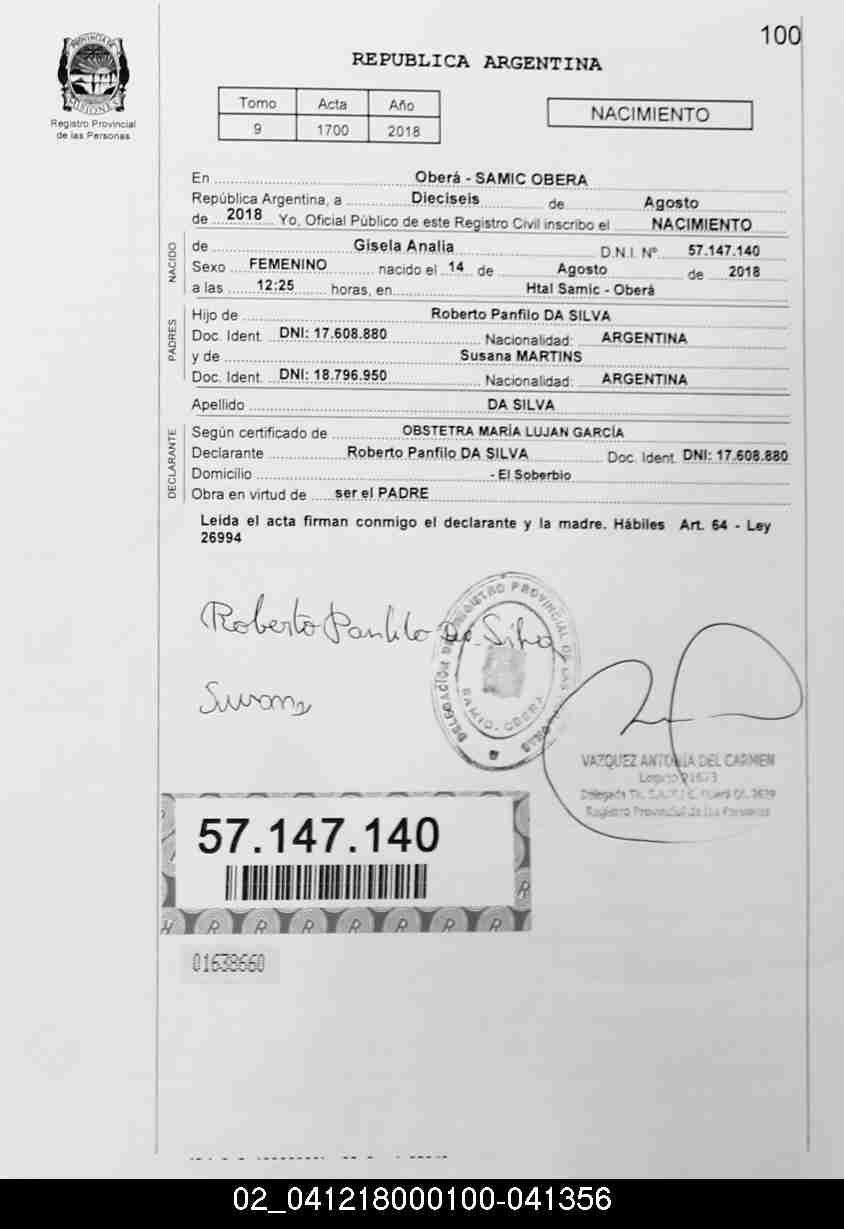 100
REPUBLICA ARGENTINA
PROVINCIA DE
MISIONES
Registro Provincial
de las Personas
Tomo Acta Año
9 1700 2018
NACIMIENTO
En Oberá - SAMIC OBERA
República Argentina, a Dieciseis de Agosto
de 2018 Yo, Oficial Público de este Registro Civil inscribo el NACIMIENTO
NACIDO
de Gisela Analia D.N.I. Nº 57.147.140
Sexo FEMENINO nacido el 14 de Agosto de 2018
a las 12:25 horas, en Htal Samic - Oberá
PADRES
Hijo de Roberto Panfilo DA SILVA
Doc. Ident. DNI: 17.608.880 Nacionalidad: ARGENTINA
y de Susana MARTINS
Doc. Ident. DNI: 18.796.950 Nacionalidad: ARGENTINA
Apellido DA SILVA
DECLARANTE
Según certificado de OBSTETRA MARÍA LUJAN GARCÍA
Declarante Roberto Panfilo DA SILVA Doc. Ident. DNI: 17.608.880
Domicilio - El Soberbio
Obra en virtud de ser el PADRE
Leída el acta firman conmigo el declarante y la madre. Hábiles Art. 64 - Ley
26994
Roberto Panfilo Da Silva
Susana
DELEGACIÓN REGISTRO PROVINCIAL DE LAS
SAMIC. OBERA
VAZQUEZ ANTONIA DEL CARMEN
Legajo
Registro Provincial de las Personas
57.147.140
R R R R R R R R
01638660
02_041218000100-041356